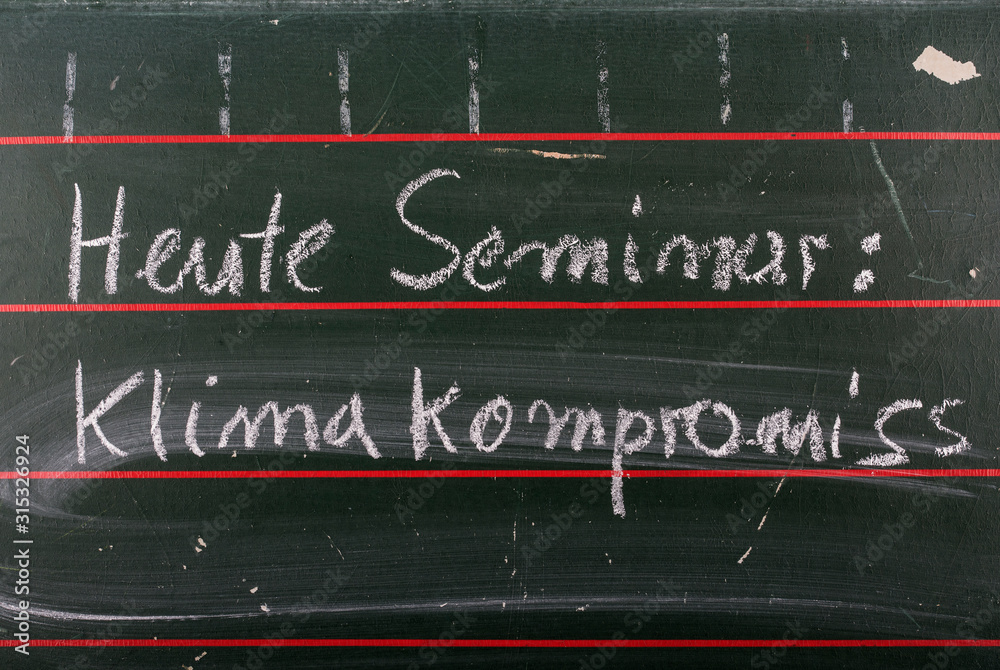 Heute Seminar:
Klimakompromiss
Adobe Stock | #315326924